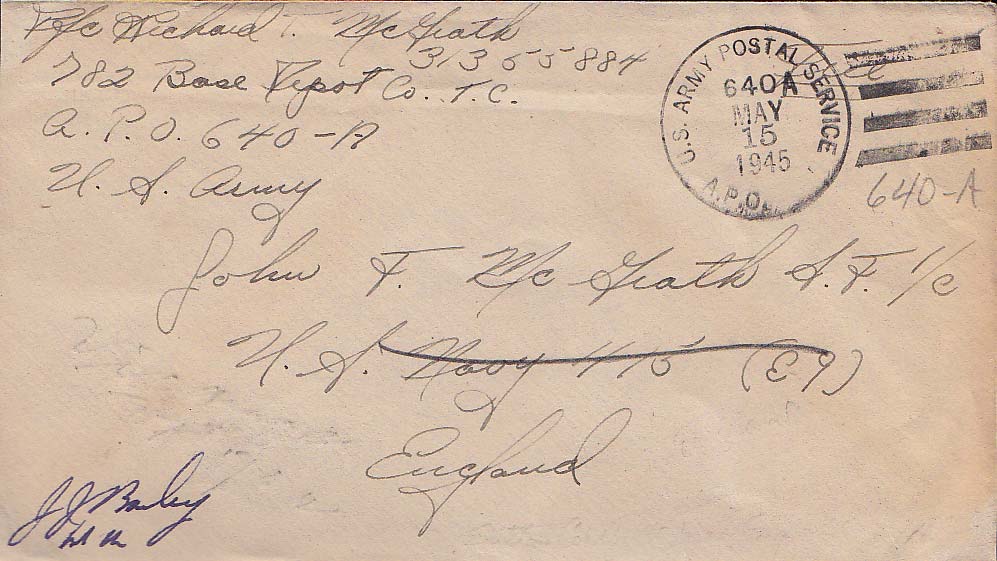 Pfc Richard T. McGrath
31365884
782 Base Depot Co. T.C.
A. P. O. 640-A
U. S. Army
U.S. ARMY POSTAL SERVICE
640A
MAY
15
1945
A.P.O.
Free
640-A
John F. McGrath S.F. 1/c
U. S. Navy 115 (E9)
England
J J Bailey